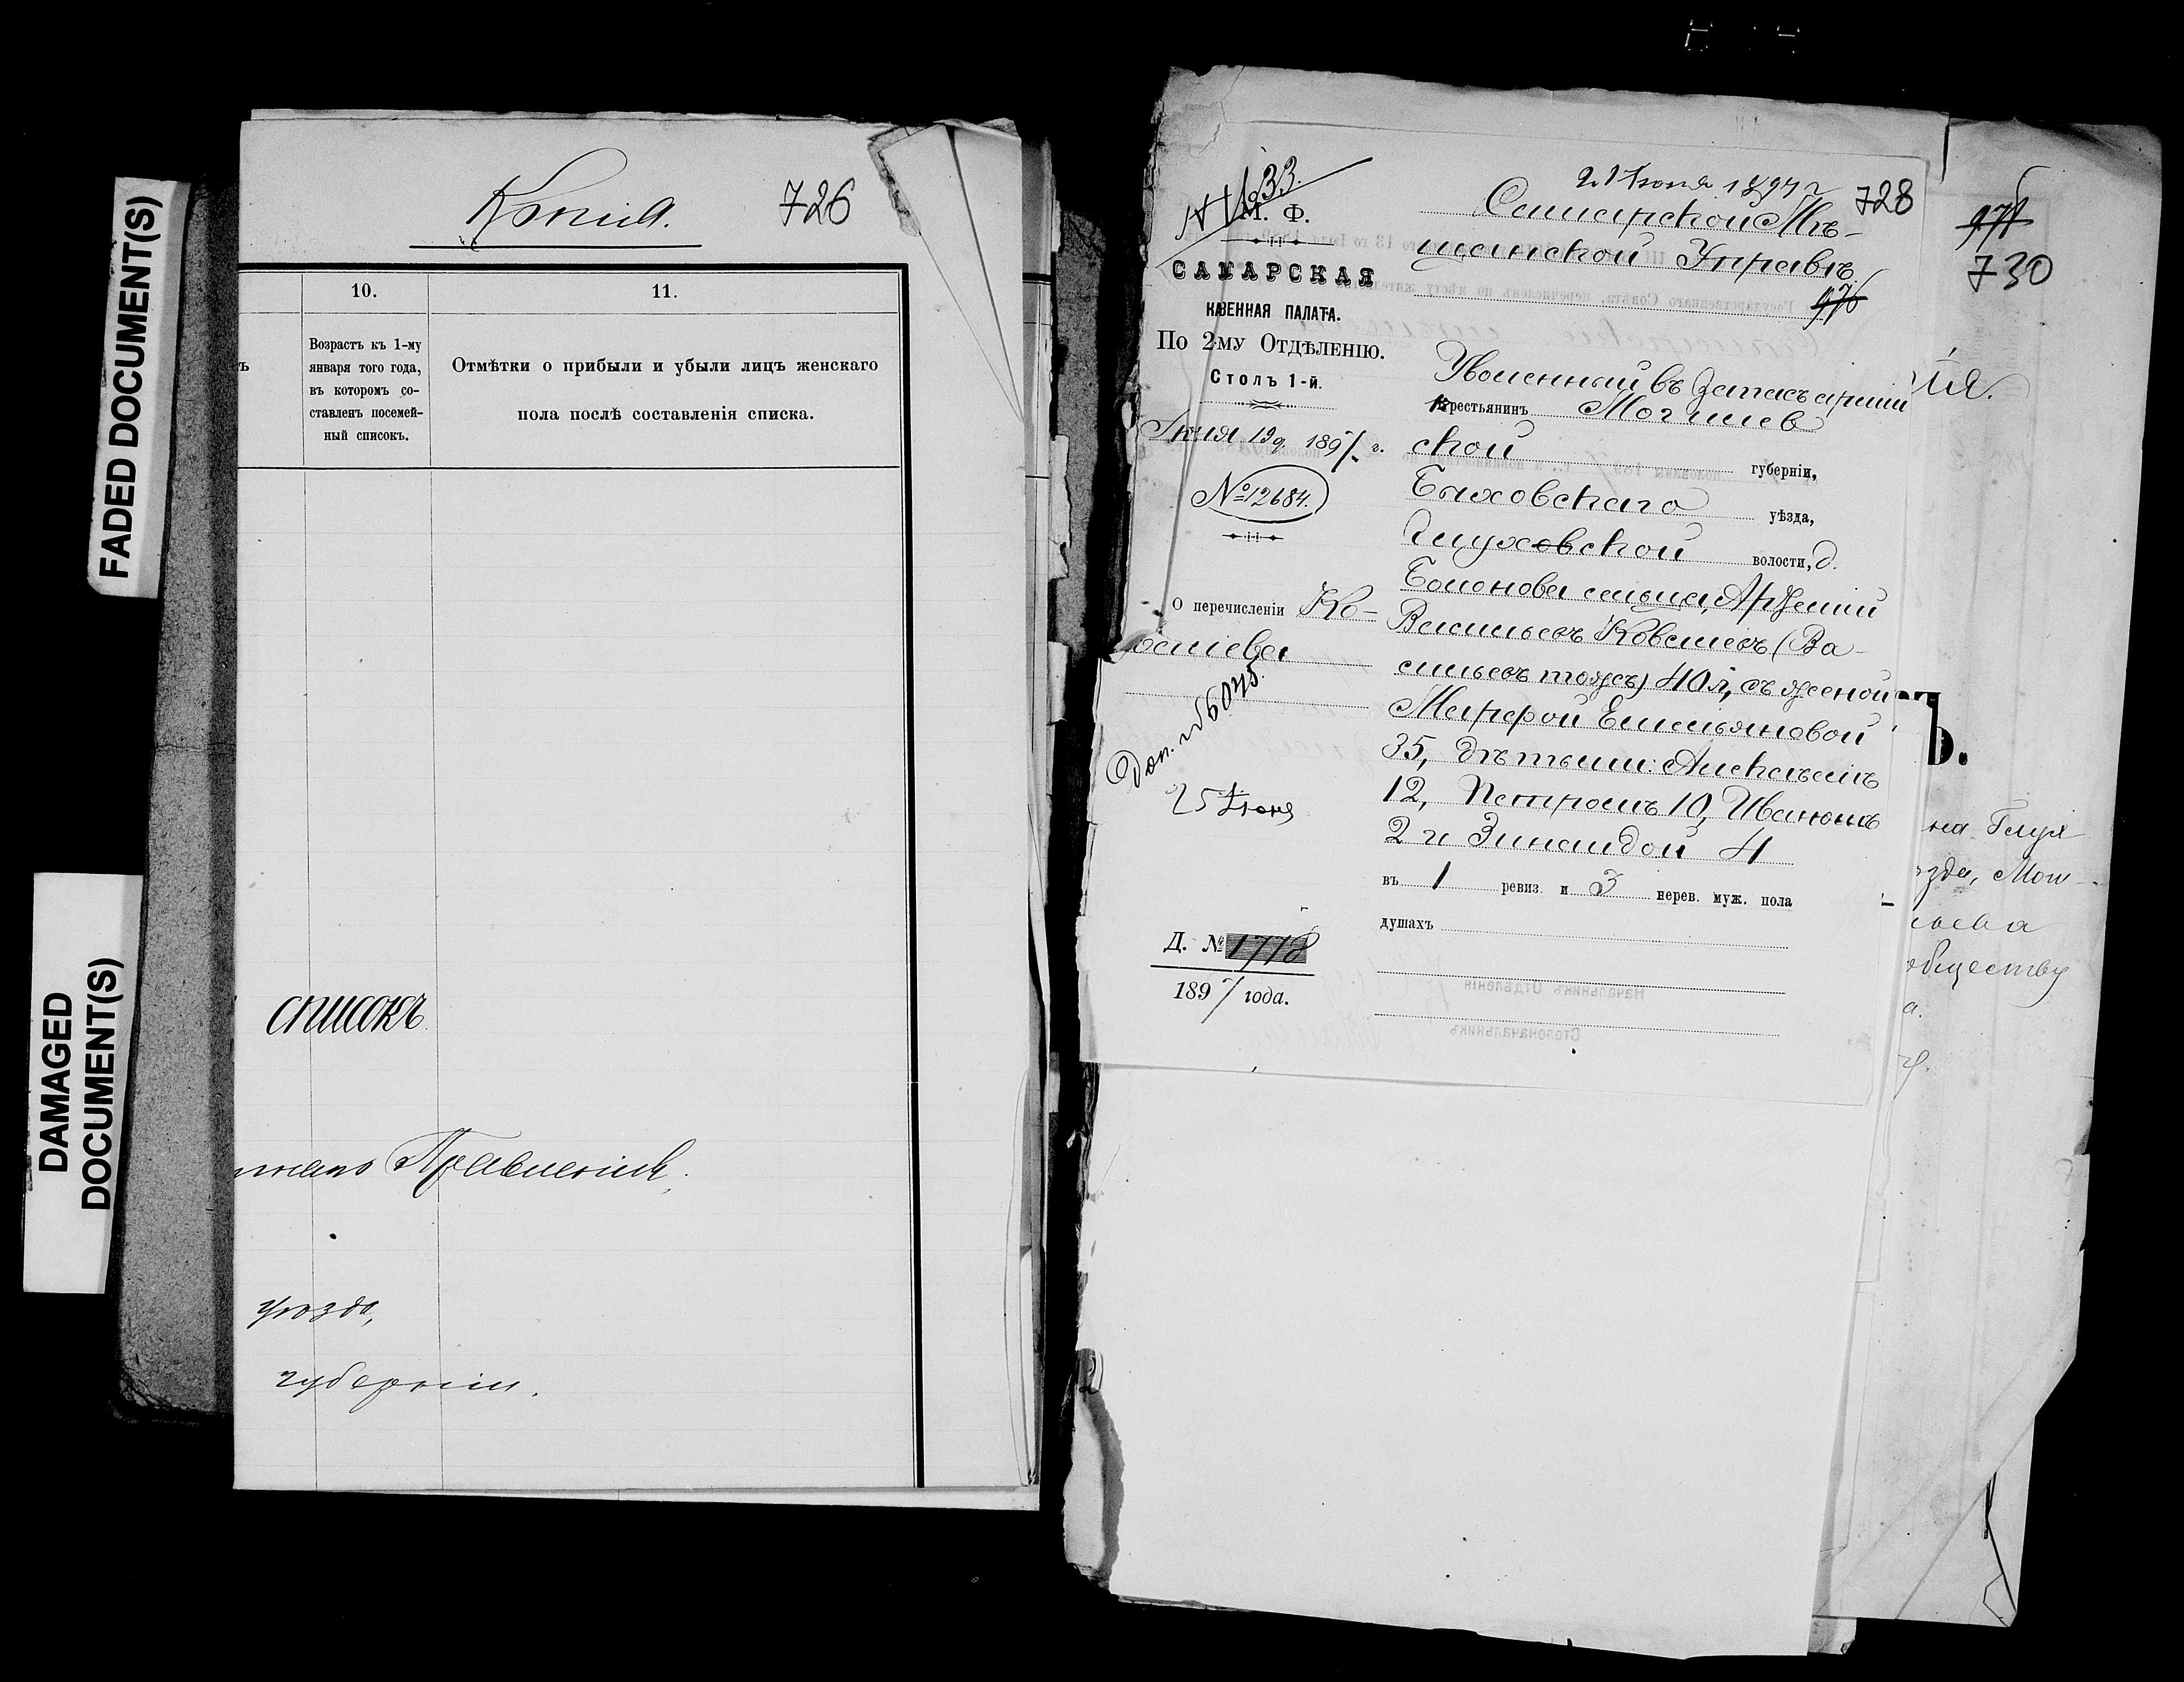 FADED DOCUMENT(S)
DAMAGED
DOCUMENT(S)
Копия.
726
10.
11.
ъ
Возрастъ къ 1-му
января того года,
въ которомъ со-
ставленъ посемей-
ный списокъ.
Отмѣтки о прибыли и убыли лицъ женскаго
пола послѣ составленія списка.
списокъ
Правленія.
уѣзда,
губерніи.
М. Ф.
САМАРСКАЯ
КАЗЕННАЯ ПАЛАТА.
По 2-му Отдѣленію.
Столъ 1-й.
Іюня 19 д. 1897 г.
№ 12684.
О перечисленіи Ко-
валева
Доп. №6075.
25 Іюня
Д. № 1778
1897 года.
21 Іюня 1897 г
728
Самарской Мѣ-
щанской Управѣ.
976
Уволенный въ запасъ арміи
Крестьянинъ Могилев
ской губерніи,
Быховскаго уѣзда,
Глуховской волости, д.
Болонова сельца, Арѳемій
Васильевъ Ковалевъ (Ва-
сильевъ тожъ) 40 л, съ женой
Марфой Емельяновой
35, дѣтьми: Алексѣемъ
12, Петромъ 10, Иваномъ
2 и Зинаидой 4
въ 1 ревиз. и 3 нерев. муж. пола
душахъ
Начальникъ Отдѣленія
Столоначальникъ
730
ія.
Ъ.
на Глух
ѣзда, Моги-
льева
обществу
а.